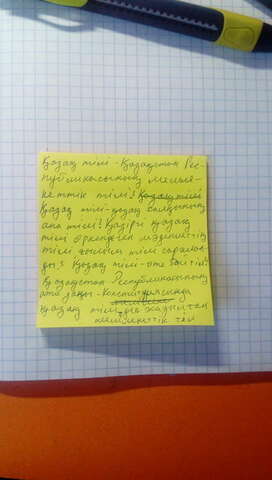 Қазақ тілі - Қазақстан Рес-
публикасының мемле-
кеттік тілі! Қазақ тілі
Қазақ тілі-қазақ халқының
ана тілі! Қазіргі қазақ
тілі өркендеген мәдениеттің
тілі ғылым тілі саралан-
ды! Қазақ тілі-өте бай тіл!
Қазақстан Республикасының
ата заңы - Конституциясында
қазақ тіліндік жазылған
мемлекеттік тіл